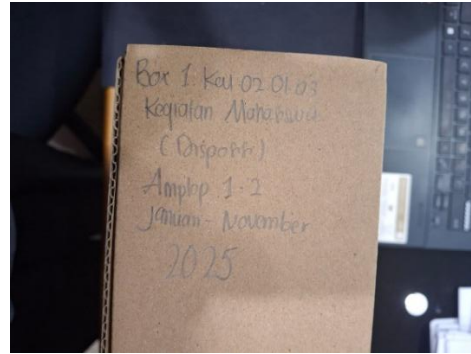 Box 1 Kol 02.01.03
Kegiatan Mahasiswa
(Dispora)
Amplop 1-2
Januari - November
2025